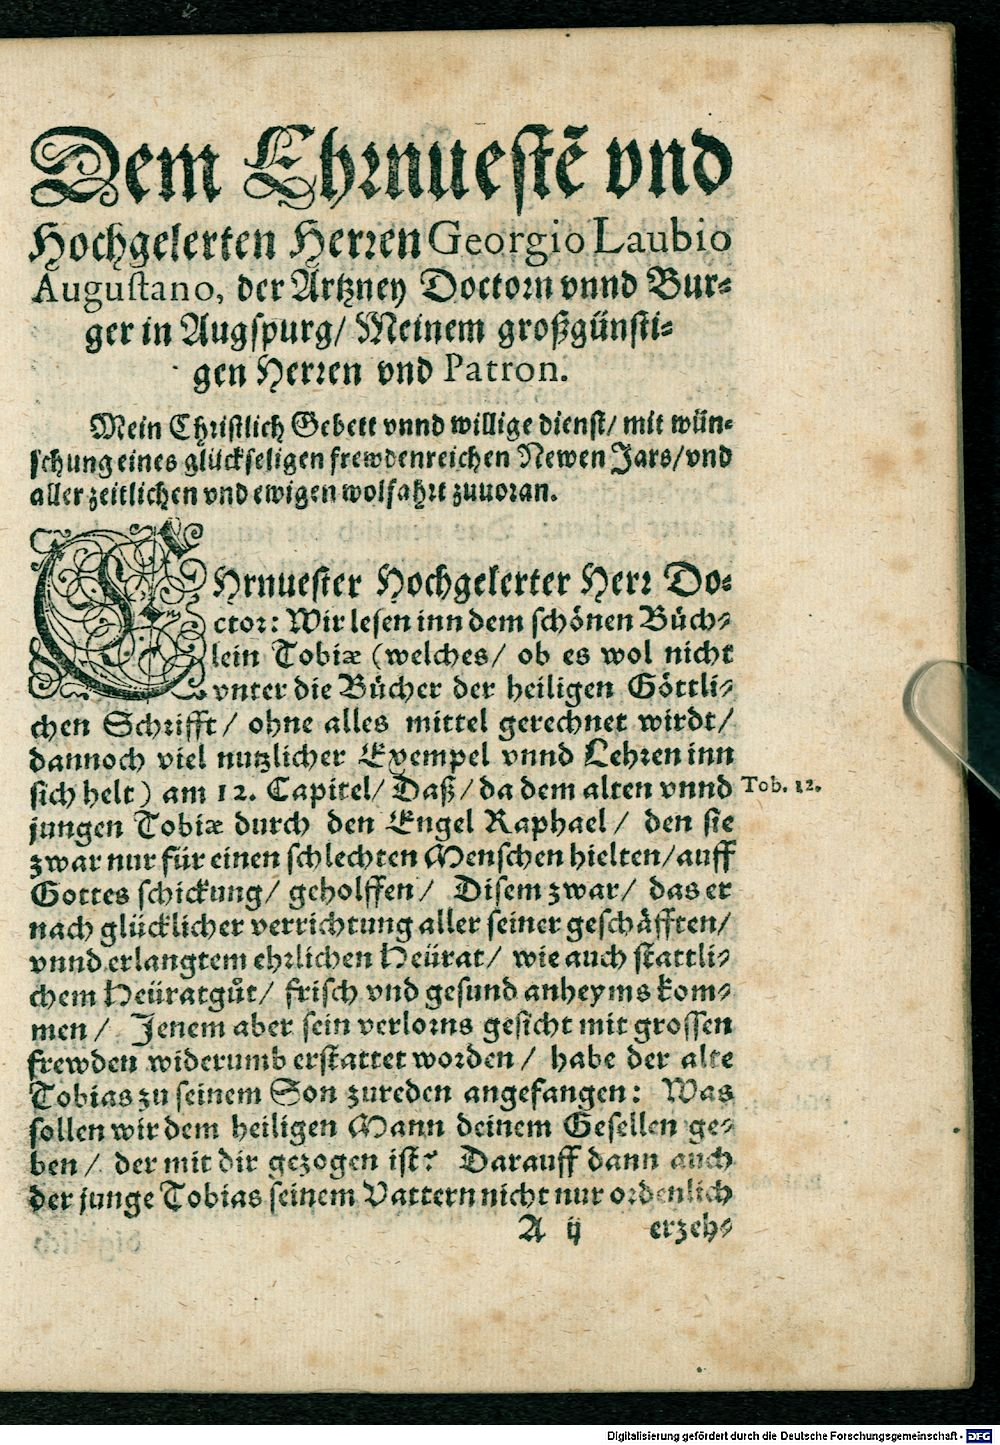 Dem Ehrnuestē vnd
Hochgelerten Herren Georgio Laubio
Augustano, der Artzney Doctorn vnnd Bur-
ger in Augspurg/ Meinem großgünsti-
gen Herren vnd Patron.
Mein Christlich Gebett vnnd willige dienst/ mit wün-
schung eines glückseligen frewdenreichen Newen Jars/ vnd
aller zeitlichen vnd ewigen wolfahrt zuuoran.
EHrnuester Hochgelerter Herr Do-
ctor: Wir lesen inn dem schönen Büch-
lein Tobiæ (welches/ ob es wol nicht
vnter die Bücher der heiligen Göttli-
chen Schrifft/ ohne alles mittel gerechnet wirdt/
dannoch viel nutzlicher Exempel vnnd Lehren inn
sich helt) am 12. Capitel/ Daß/ da dem alten vnnd
Tob. 12.
jungen Tobiæ durch den Engel Raphael/ den sie
zwar nur für einen schlechten Menschen hielten/ auff
Gottes schickung/ geholffen/ Disem zwar/ das er
nach glücklicher verrichtung aller seiner geschäfften/
vnnd erlangtem ehrlichen Heürat/ wie auch stattli-
chem Heüratgůt/ frisch vnd gesund anheyms kom-
men/ Jenem aber sein verlorns gesicht mit grossen
frewden widerumb erstattet worden/ habe der alte
Tobias zu seinem Son zureden angefangen: Was
sollen wir dem heiligen Mann deinem Gesellen ge-
ben/ der mit dir gezogen ist? Darauff dann auch
der junge Tobias seinem Vattern nicht nur ordenlich
A ij erzeh-
Digitalisierung gefördert durch die Deutsche Forschungsgemeinschaft - DFG